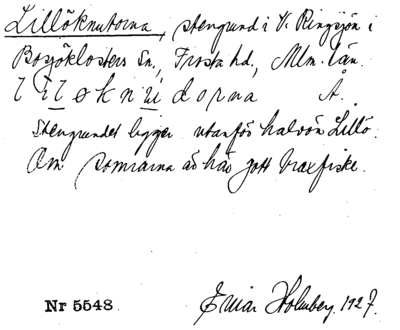 Lillöknutorna, stengrund i V. Ringsjön i
Bosjöklosters Sn., Frosta hd., Mlm. län.
liløknudorna Å.
Stengrundet ligger utanför halvön Lillö.
Om somrarna är här gott braxfiske.
Nr 5548 Einar Holmberg. 1927.